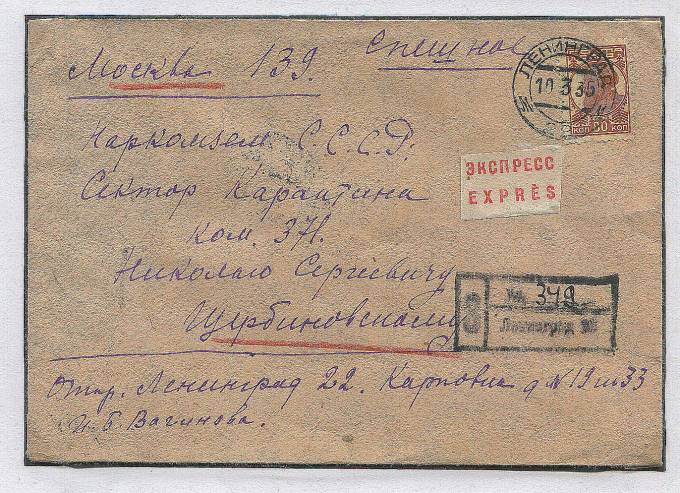 Москва 139.
Спешное
ЛЕНИНГРАД
10 3 35
КОП 80 КОП
Наркомзем С.С.С.Р.
ЭКСПРЕСС
EXPRÈS
Сектор Карантина
ком. 371.
Николаю Сергеевичу
№ 349
Щербиновскому
Ленинград
Отпр. Ленинград 22. Карповка д N 19 кв 33
Вагинова.